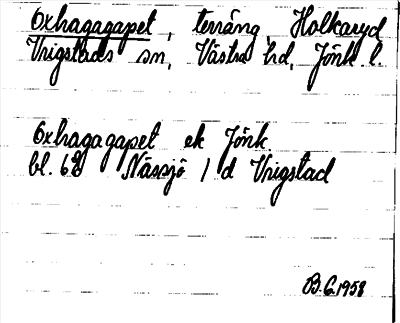 Oxhagagapet, terräng, Holkaryd
Vrigstads sn, Västra hd, Jönk l.
Oxhagagapet ek Jönk
bl. 6E Nässjö 1 d Vrigstad
B.G. 1958